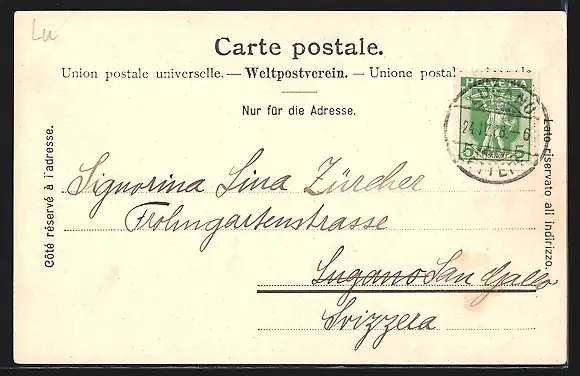 Lu
Carte postale.
Union postale universelle. — Weltpostverein. — Unione postale
Nur für die Adresse.
HELVETIA
LUGANO
5 5
LETTERE
Côté réservé à l'adresse.
Lato riservato all indirizzo.
Signorina Lina Zürcher
Frohngartenstrasse
Lugano San Gallo
Svizzera